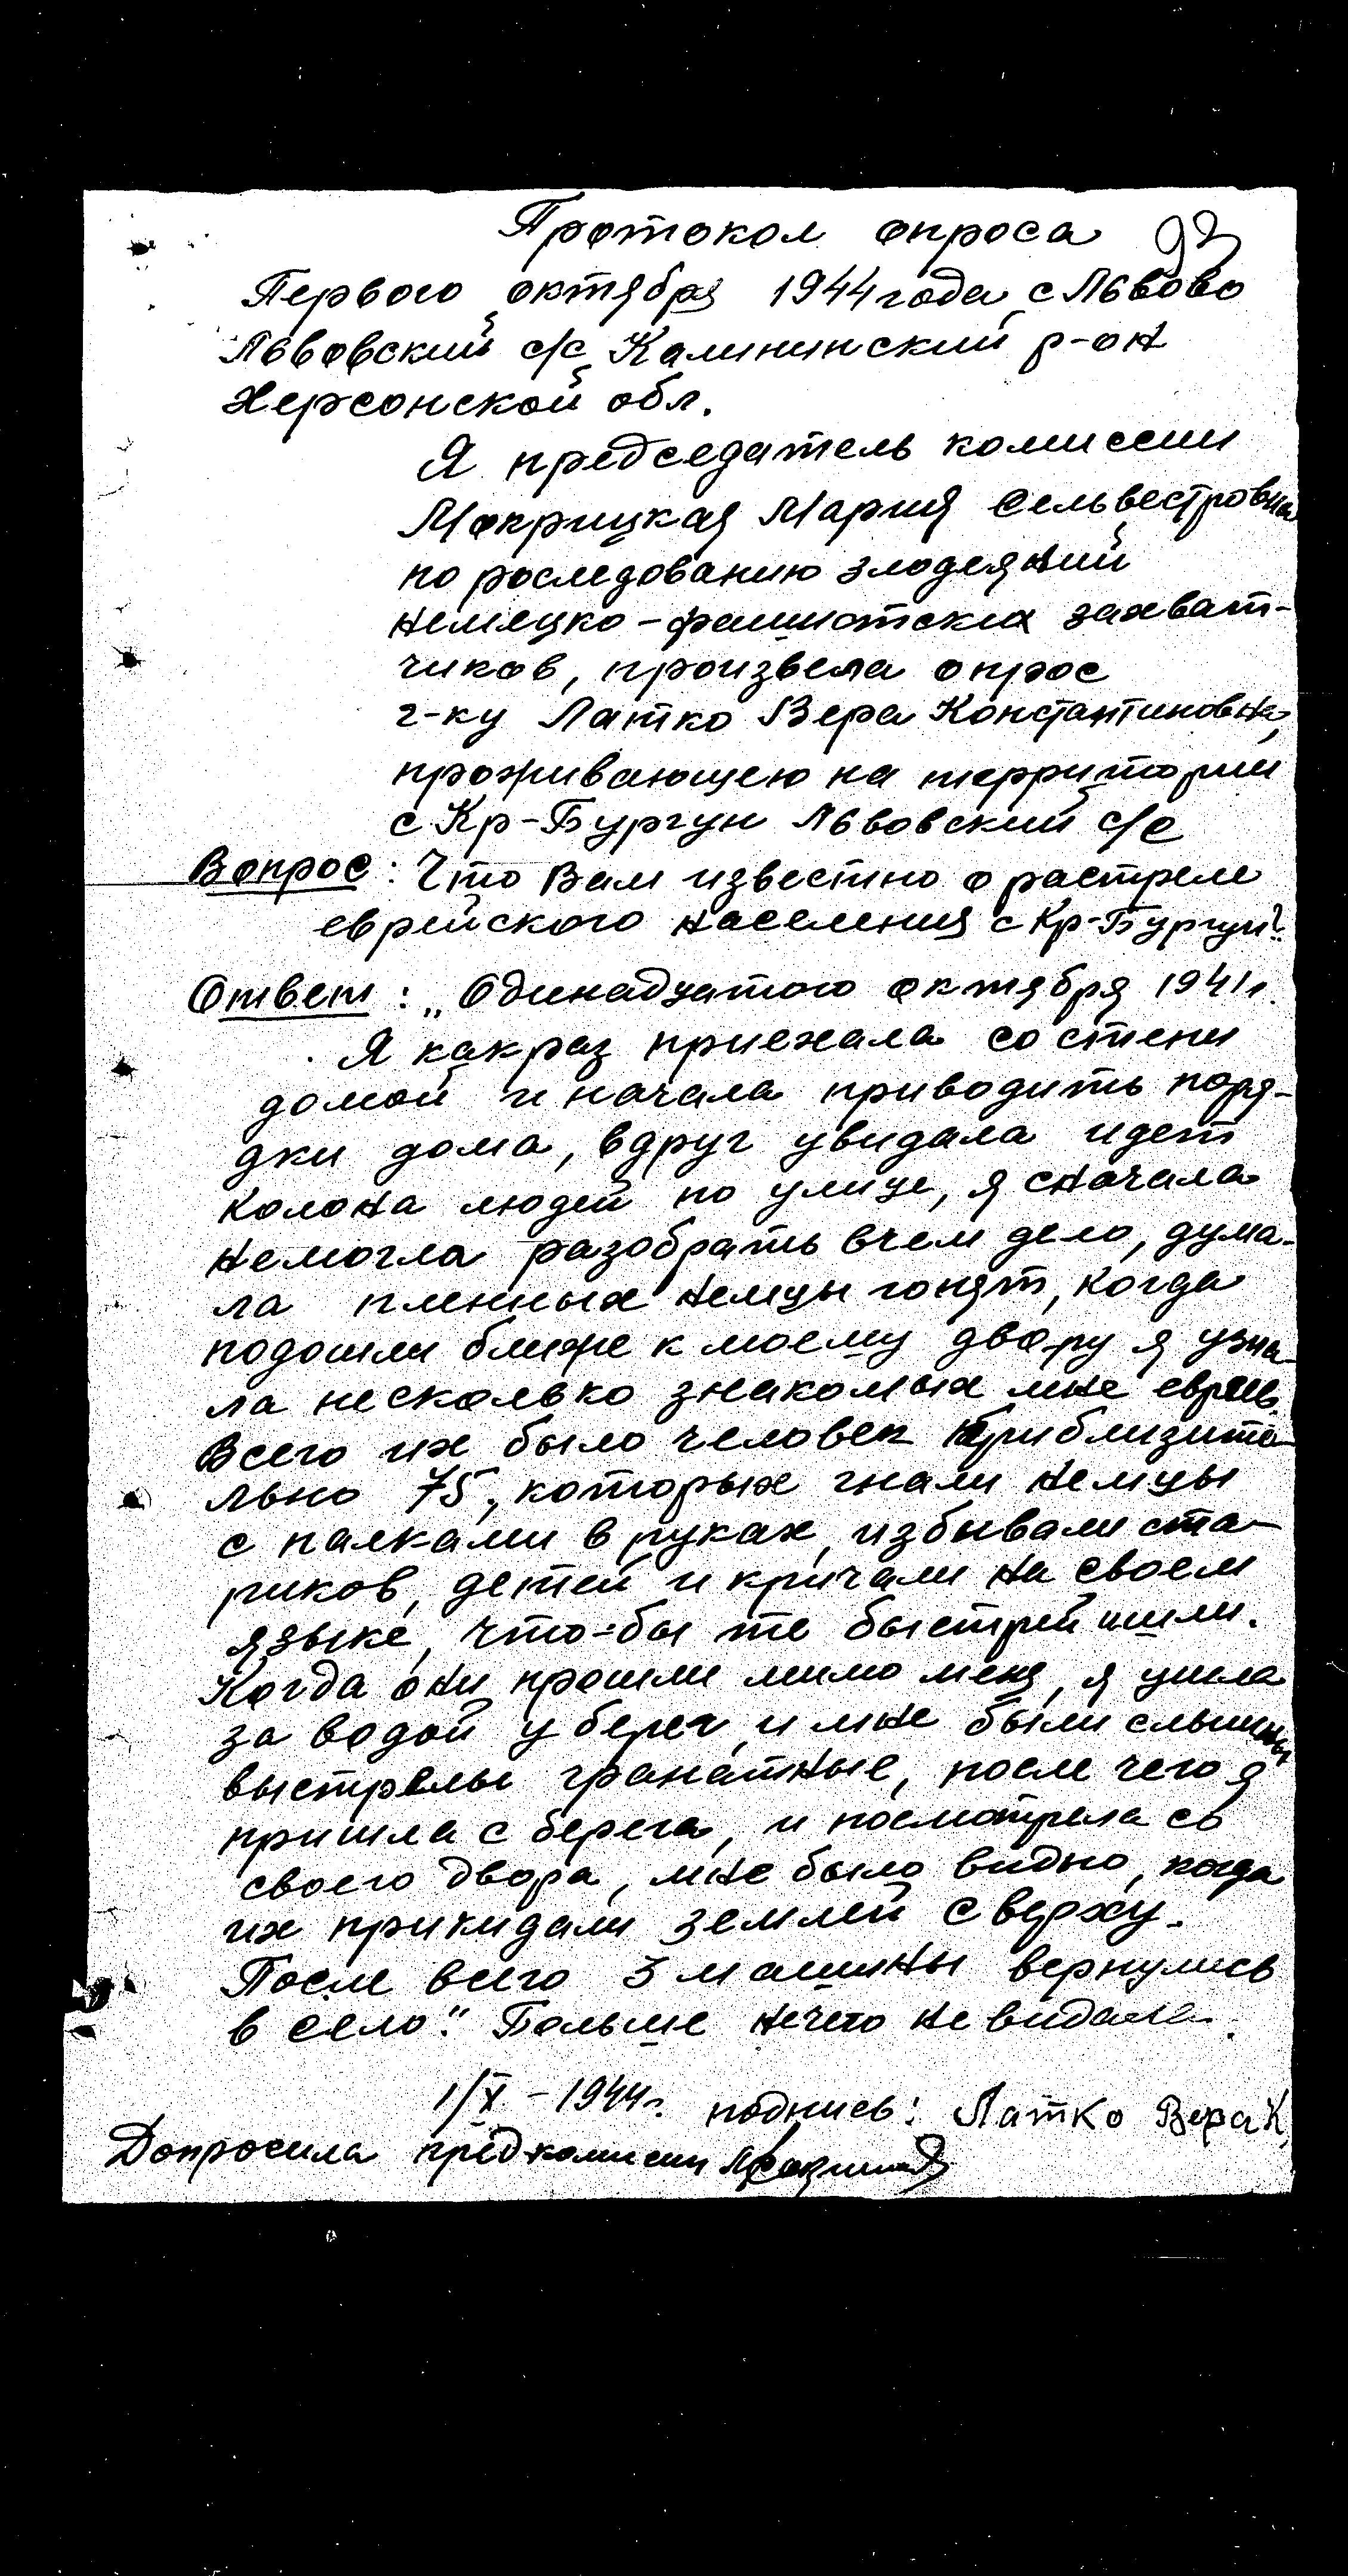 Протокол опроса 93
Первого октября 1944 года с Львово
Львовский с/с Калининский р-он
Херсонской обл.
Я председатель комиссии
Мокрицкая Мария Сельвестровна
по роследованию злодеяний
немецко-фашистских захват-
чиков, произвела опрос
г-ку Латко Вера Константиновна,
проживающею на территории
с Кр-Бургун Львовский с/с
Вопрос: Что Вам известно о растреле
еврейского населения с Кр-Бургун?
Ответ: „Одинадцатого октября 1941г.
Я какраз приехала со степи
домой и начала приводить поря-
дки дома, вдруг увидала идет
колона людей по улице, я сначала
немогла разобрать вчем дело, дума-
ла пленных немцы гонят, когда
подошли ближе к моему двору я узна-
ла несколько знакомых мне евреев.
Всего их было человек приблизите-
льно 75, которых гнали немцы
с палками в руках, избивали ста-
риков, детей и кричали на своем
языке, что-бы те быстрей шли.
Когда они прошли мимо меня, я ушла
за водой у берег, и мне были слышны
выстрелы гранатные, после чего я
пришла с берега, и посмотрела со
своего двора, мне было видно, когда
их прикидали землей сверху.
После всего 3 машины вернулись
в село." Больше нечего не видала.
1/X - 1944г. подпись: Латко Вера К.
Допросила предкомисии